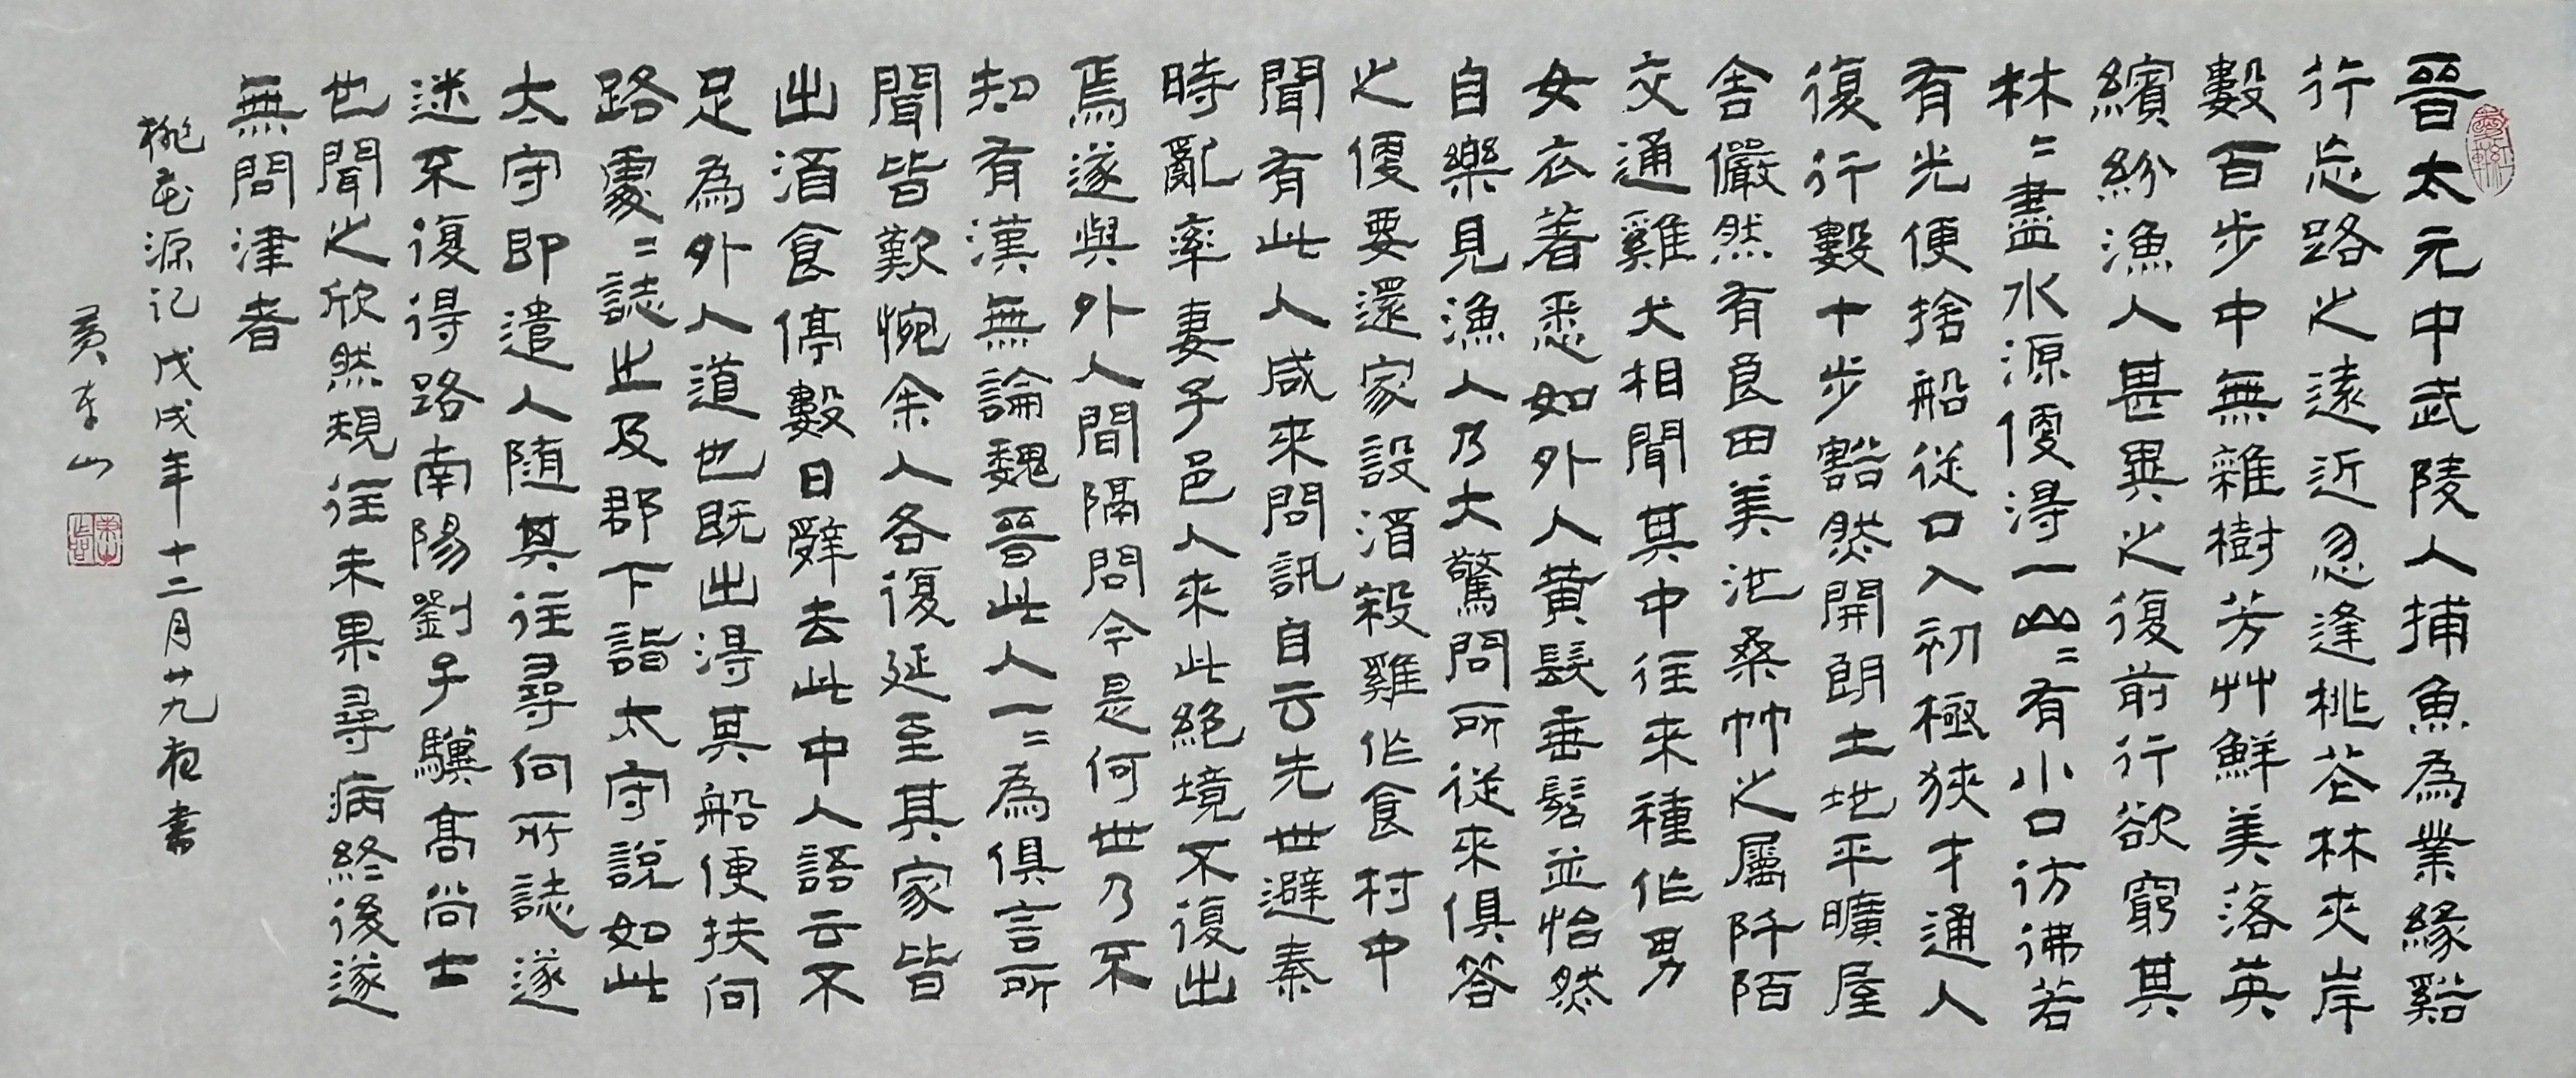 晉太元中武陵人捕魚為業緣谿
行忘路之遠近忽逢桃花林夾岸
數百步中無雜樹芳艸鮮美落英
繽紛漁人甚異之復前行欲窮其
林〻盡水源便得一山〻有小口彷彿若
有光便捨船從口入初極狹才通人
復行數十步豁然開朗土地平曠屋
舍儼然有良田美池桑竹之屬阡陌
交通雞犬相聞其中往來種作男
女衣着悉如外人黃髮垂髫並怡然
自樂見漁人乃大驚問所從來俱答
之便要還家設酒殺雞作食村中
聞有此人咸來問訊自云先世避秦
時亂率妻子邑人來此絕境不復出
焉遂與外人間隔問今是何世乃不
知有漢無論魏晉此人一〻為俱言所
聞皆歎惋余人各復延至其家皆
出酒食停數日辭去此中人語云不
足為外人道也既出得其船便扶向
路處〻誌之及郡下詣太守說如此
太守即遣人隨其往尋向所誌遂
迷不復得路南陽劉子驥高尚士
也聞之欣然規往未果尋病終後遂
無問津者
桃花源记戊戌年十二月廿九夜書
黃東山